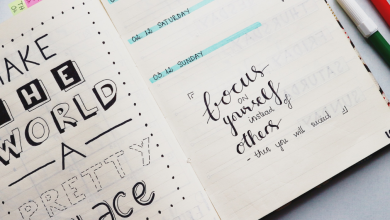 MAKE
THE
WORLD
A
PRETTY
place
02.12 SATURDAY
03.12 SUNDAY
focus
ON
yourself
instead of
others
- then you will succeed